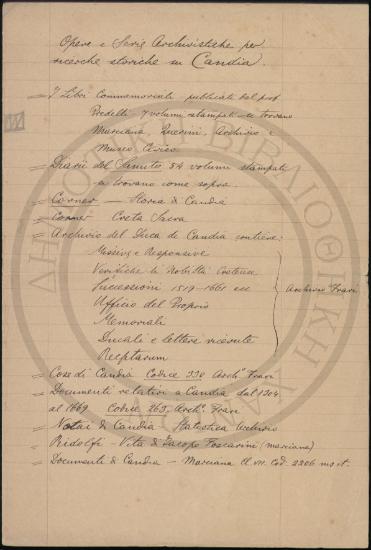 Opere e Serie Archivistiche per
ricerche storiche su Candia.
= I Libri Commemoriali pubblicati dal prof
Predelli 7 volumi stampati si trovano
Marciana, Querini, Archivio e
Museo Civico.
= Diarii del Sanuto 54 volumi stampati
si trovano come sopra.
= Corner — Storia di Candia
= Corner Creta Sacra
= Archivio del Duca di Candia contiene:
Missive e Responsive
Verifiche di Nobiltà Cretense
Successioni 1519-1661 ecc
Ufficio del Proprio
Memoriali
Ducali e lettere ricevute
Receptarum
Archivio Frari
= Cose di Candia Codice 338 Archo Frari
= Documenti relativi a Candia dal 1304
al 1669 Codice 263. Archo. Frari
= Notai di Candia Statistica Archivio
= Ridolfi - Vita di Jacopo Foscarini (marciana)
= Documenti di Candia — Marciana Cl. VII. Cod. 2206 mst.
ΔΗΜΟΣΙΑ ΒΙΒΛΙΟΘΗΚΗ